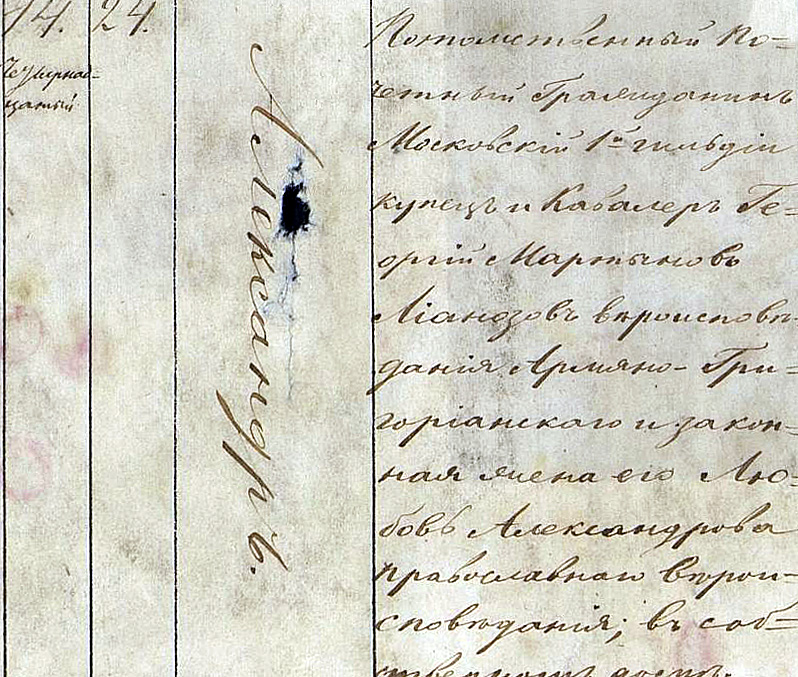 14. 24.
Четырнад-
цатый
Александръ.
Потомственный По-
четный Гражданинъ
Московскій 1й гильдіи
купецъ и Кавалеръ Ге-
оргій Мартыновъ
Ліанозовъ вѣроисповѣ-
данія Армяно-Гри-
горіанскаго и закон-
ная жена его Лю-
бовь Александрова
православнаго вѣрои-
сповѣданія; въ соб-
ственномъ домѣ.